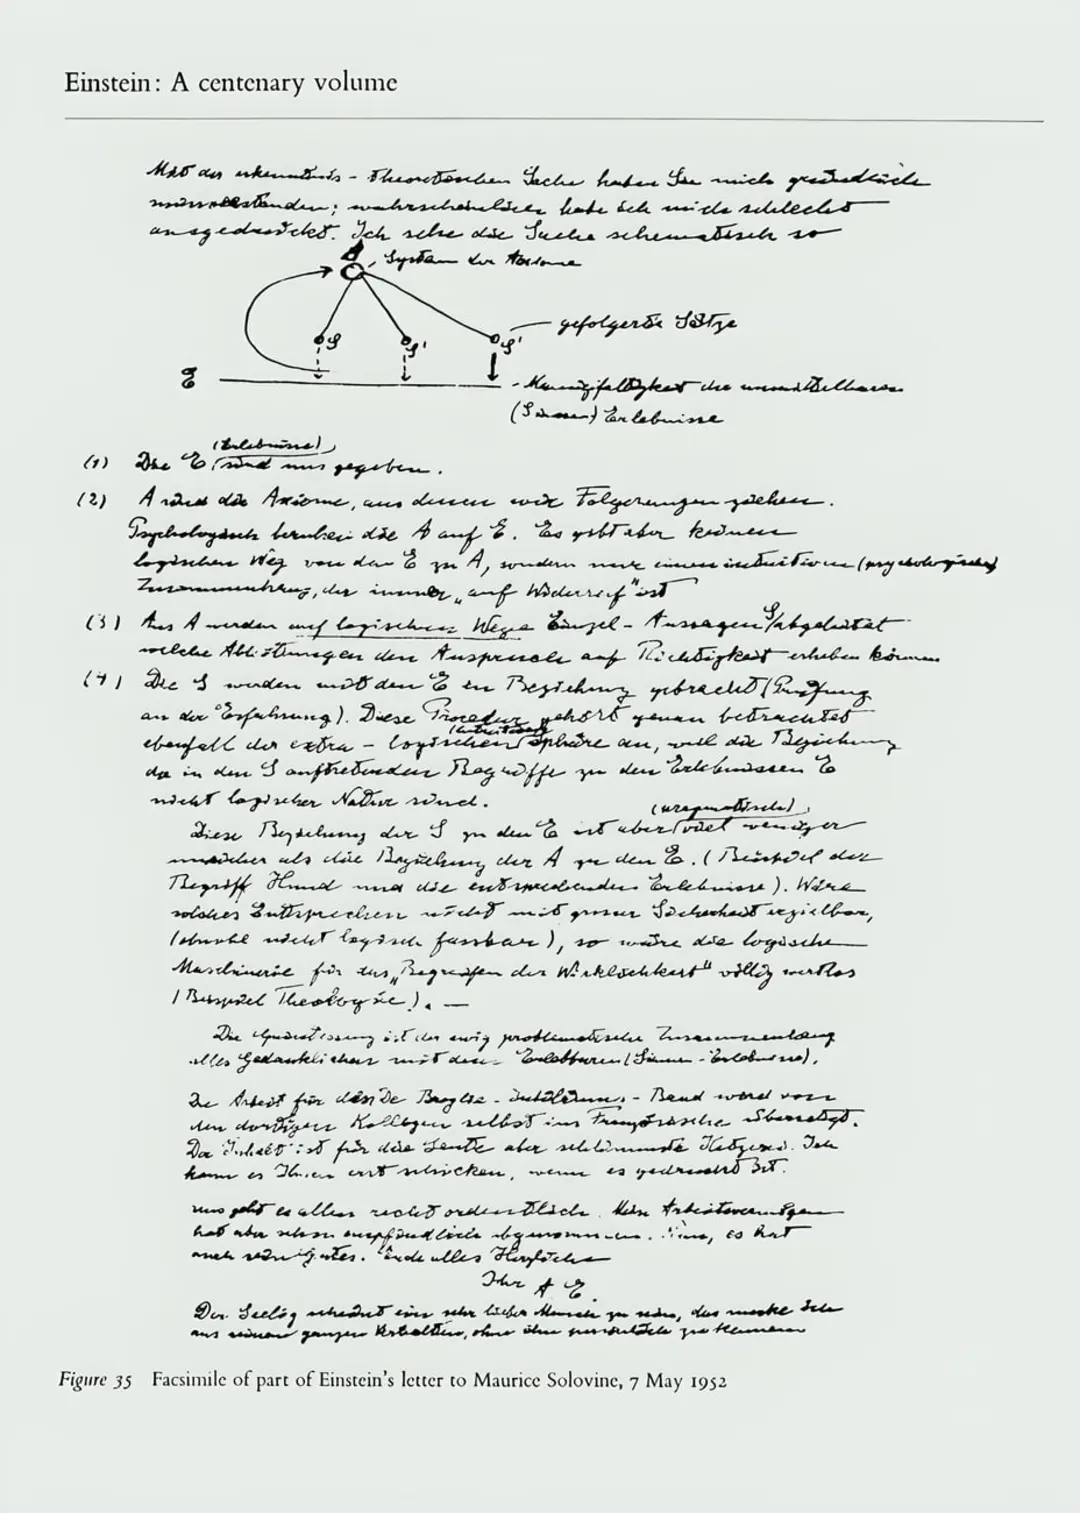 Einstein: A centenary volume
Mit der erkenntnis-theoretischen Sache haben Sie mich gründlich
missverstanden; wahrscheinlich habe ich mich schlecht
ausgedrückt. Ich sehe die Sache schematisch so
A, System der Axiome
S S' S' gefolgerte Sätze
E Mannigfaltigkeit der unmittelbaren
(Sinnes) Erlebnisse
(Erlebnisse)
(1) Die E sind uns gegeben.
(2) A sind die Axiome, aus denen wir Folgerungen ziehen.
Psychologisch beruhen die A auf E. Es gibt aber keinen
logischen Weg von den E zu A, sondern nur einen intuitiven (psychologischen)
Zusammenhang, der immer „auf Widerruf" ist
(3) Aus A werden auf logischem Wege Einzel-Aussagen S abgeleitet
welche Ableitungen den Anspruch auf Richtigkeit erheben können
(4) Die S werden mit den E in Beziehung gebracht (Prüfung
an der Erfahrung). Diese Procedur gehört genau betrachtet
(intuitiven)
ebenfall der extra-logischen Sphäre an, weil die Beziehung
der in den S auftretenden Begriffe zu den Erlebnissen E
nicht logischer Natur sind.
(pragmatisch)
Diese Beziehung der S zu den E ist aber viel weniger
unsicher als die Beziehung der A zu den E. (Beispiel der
Begriff Hund und die entsprechenden Erlebnisse). Wäre
solches Entsprechen nicht mit grosser Sicherheit erzielbar,
(obwohl nicht logisch fassbar), so wäre die logische
Maschinerie für das „Begreifen der Wirklichkeit" völlig wertlos
(Beispiel Theologie). —
Die Quintessenz ist der ewig problematische Zusammenhang
alles Gedanklichen mit dem Erlebbaren (Sinnes-Erlebnisse).
Die Arbeit für den De Broglie-Jubiläums-Band wird von
den dortigen Kollegen selbst ins Französische übersetzt.
Der Inhalt ist für die Leute aber schlimmste Ketzerei. Ich
kann es Ihnen erst schicken, wenn es gedruckt ist.
uns geht es allen recht ordentlich. Mein Arbeitsvermögen
hat aber schon empfindlich abgenommen. es hat
auch sein gutes. Ende alles Herzliche
Ihr A E.
Der Seelig scheint ein sehr lieber Mensch zu sein, das merke ich
aus seinem ganzen Verhalten, ohne ihn persönlich zu kennen
Figure 35 Facsimile of part of Einstein's letter to Maurice Solovine, 7 May 1952